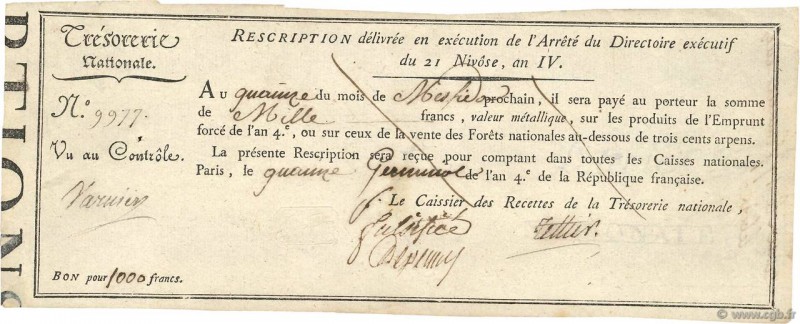 Trésorerie
Nationale.
N.º 9977.
Vu au Contrôle.
BON pour 1000 francs.
RESCRIPTION délivrée en exécution de l'Arrêté du Directoire exécutif
du 21 Nivôse, an IV.
AU quinze du mois de Messidor prochain, il sera payé au porteur la somme
de Mille francs, valeur métallique, sur les produits de l'Emprunt
forcé de l'an 4.e, ou sur ceux de la vente des Forêts nationales au-dessous de trois cents arpens.
La présente Rescription sera reçue pour comptant dans toutes les Caisses nationales.
Paris, le quinze Germinal de l'an 4.e de la République française.
Le Caissier des Recettes de la Trésorerie nationale,
falsifiée
© www.cgb.fr